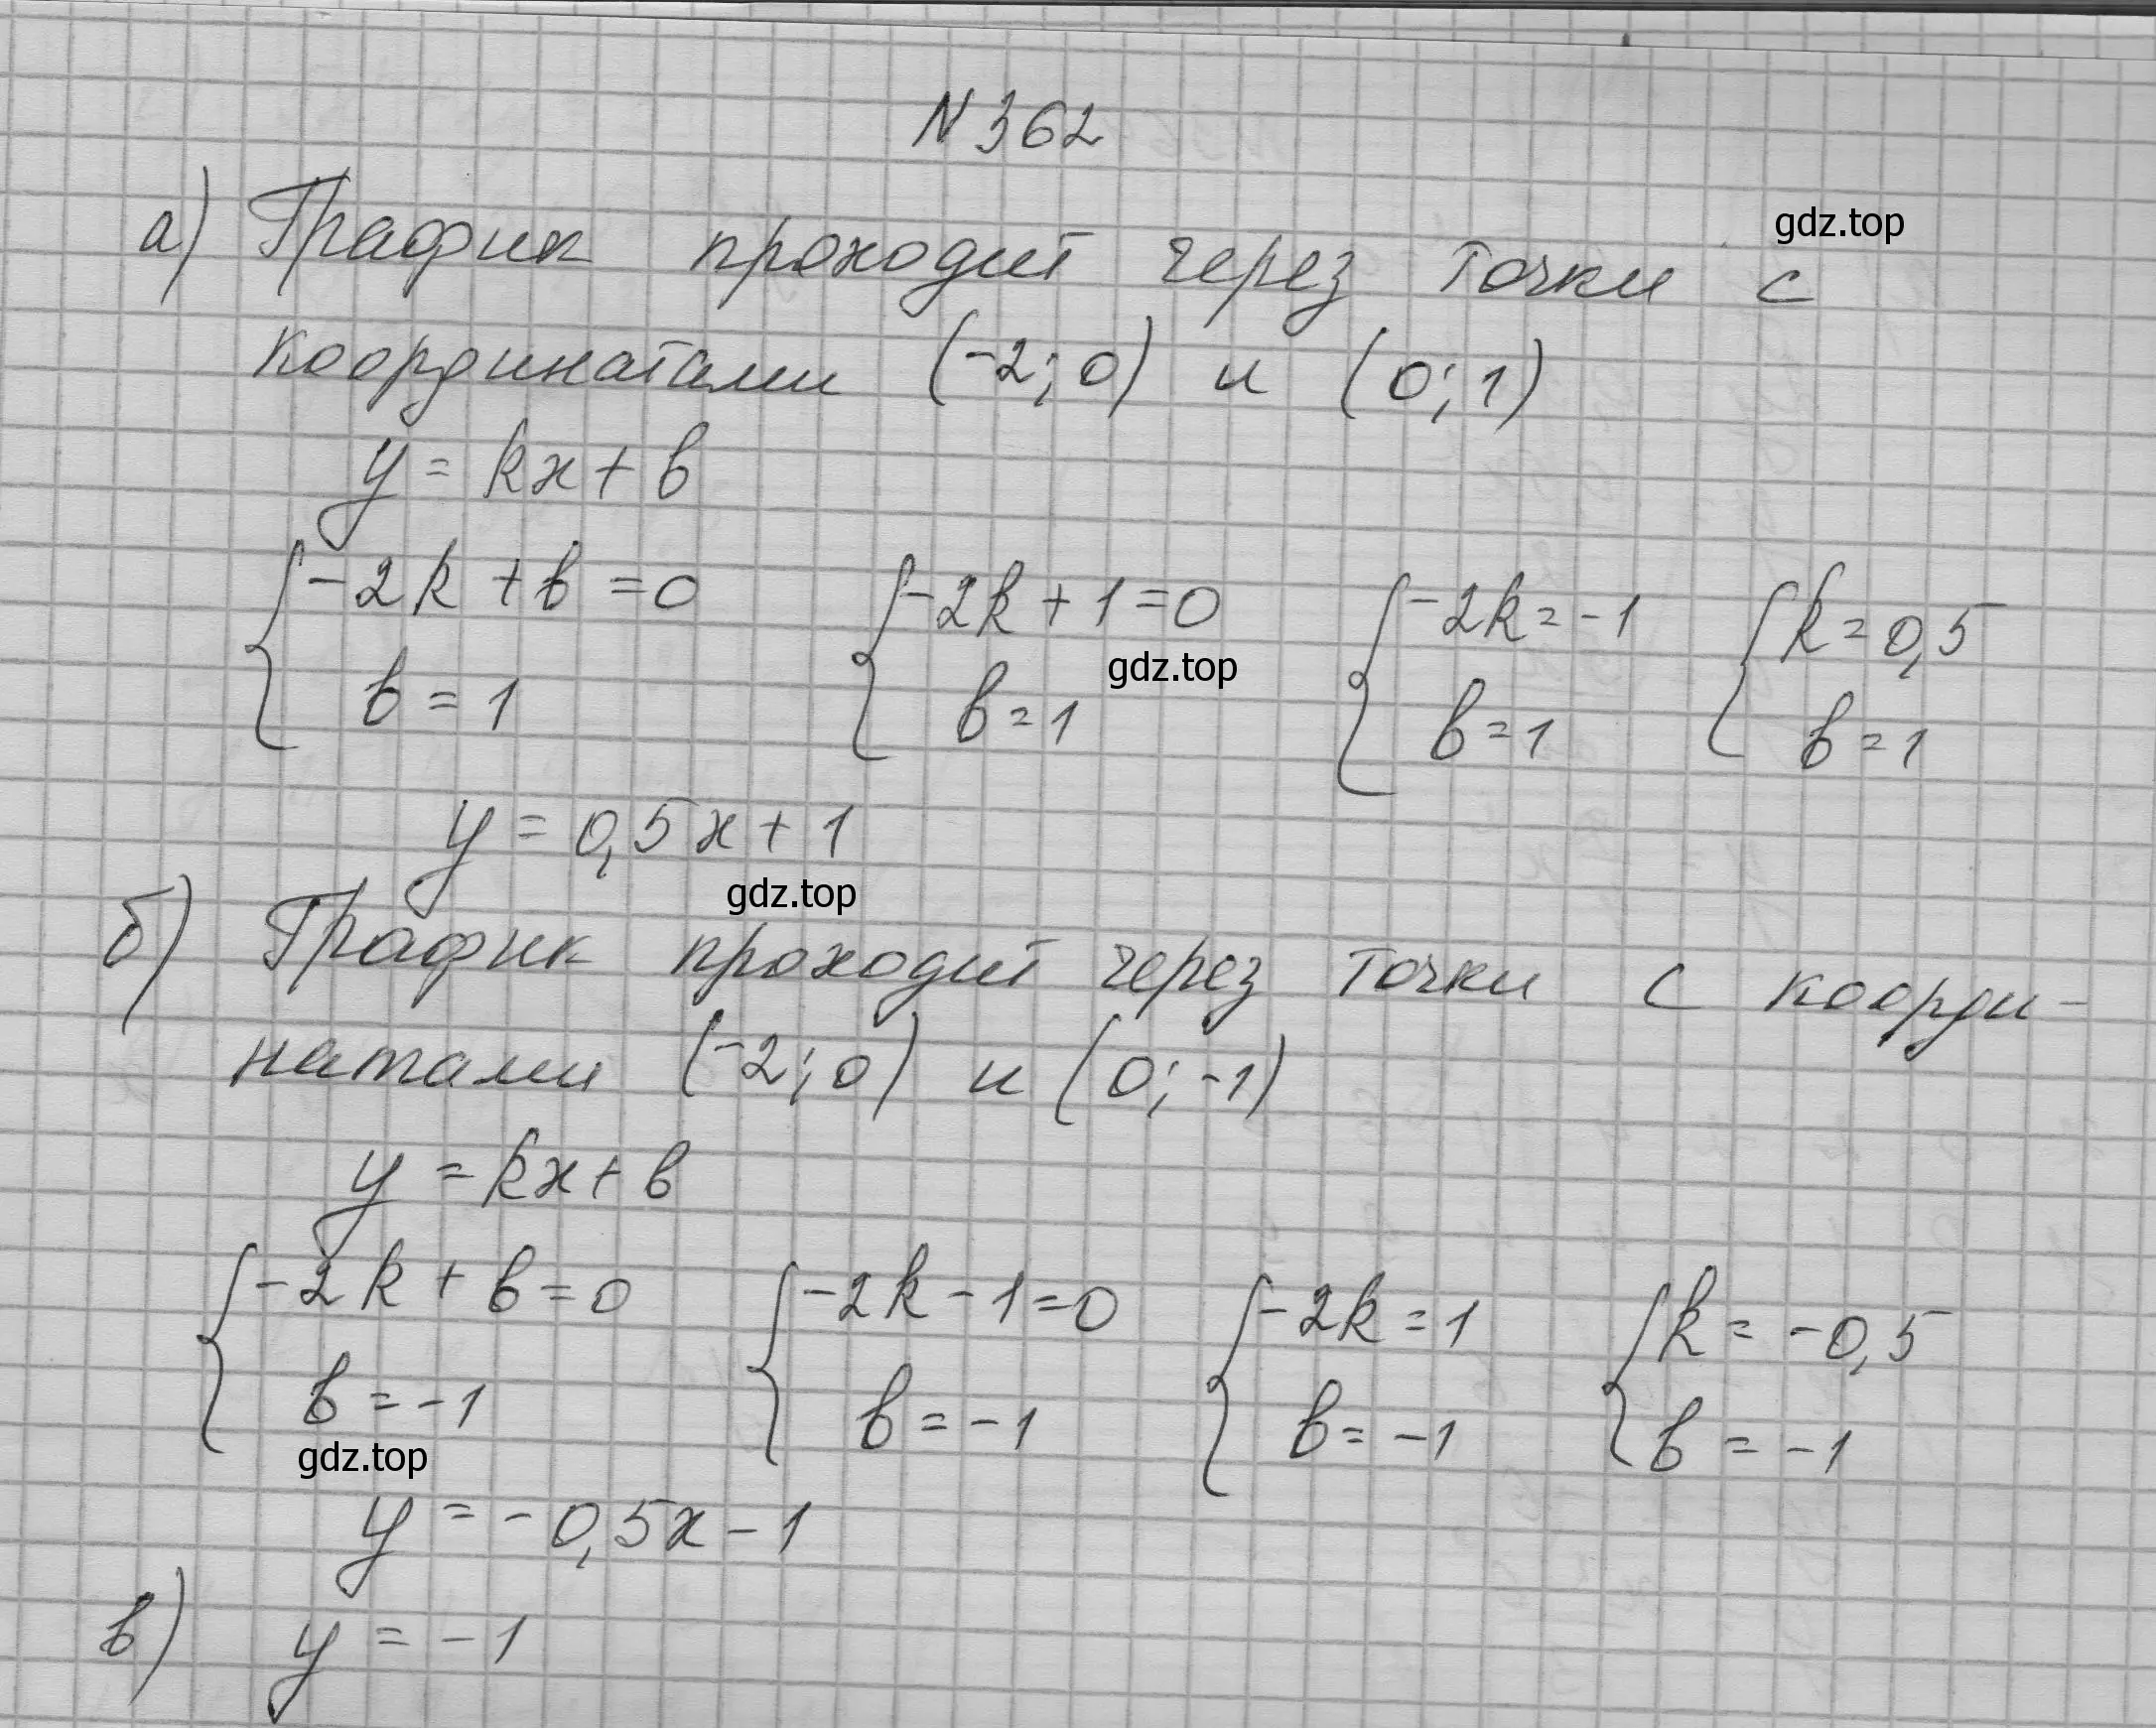 N 362
а) График проходит через точки с
gdz.top
координатами (-2; 0) и (0; 1)
y = kx + b
{-2k + b = 0 {-2k + 1 = 0 {-2k = -1 {k = 0,5
b = 1 b = 1 b = 1 b = 1
gdz.top
y = 0,5x + 1
gdz.top
б) График проходит через точки с коорди-
натами (-2; 0) и (0; -1)
y = kx + b
{-2k + b = 0 {-2k - 1 = 0 {-2k = 1 {k = -0,5
b = -1 b = -1 b = -1 b = -1
gdz.top
y = -0,5x - 1
в) y = -1